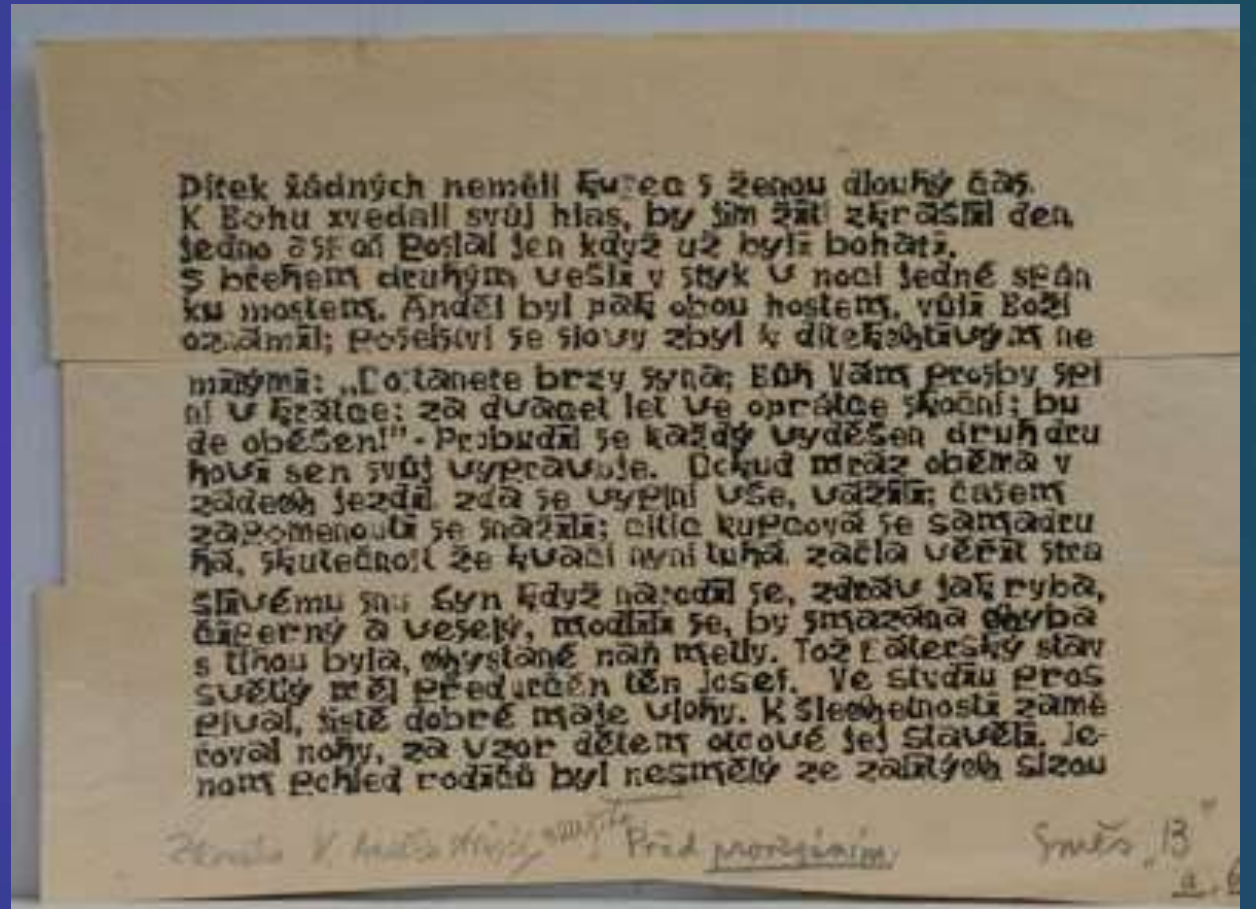 Dítek žádných neměli kupec s ženou dlouhý čas.
K Bohu zvedali svůj hlas, by jim žití zkrášlil den
jedno aspoň Poslal jen když už byli bohati.
S břehem druhým vešli v styk v noci jedné spán
ku mostem. Anděl byl pak obou hostem, vůli Boží
oznámil; poselství se slovy zbyl k dítekchtivým ne
milými: „Dostanete brzy syna; Bůh Vám prosby spl
ní v krátce: za dvacet let ve oprátce skončí; bu
de oběšen!" - Probudil se každý vyděšen druh dru
hovi sen svůj vypravuje. Dokud mráz oběma v
zádech jezdil zdá se vyplní vše, vážili; časem
zapomenouti se snažili; cítíc kupcová se samadru
há, skutečnost že kvačí nyní tuhá začla věřit stra
šlivému snu Syn když narodil se, zdráv jak ryba,
čiperný a veselý, modlili se, by smazána chyba
s tíhou byla, chystané naň metly. Tož páterský stav
světlý měl předurčen tén Josef. Ve studiu pros
píval, jistě dobré maje vlohy. K šlechetnosti zamě
roval nohy, za vzor dětem otcové jej stavěli. Je-
nom pohled rodičů byl nesmělý ze zalitých slzou
Zkouška V. Před prořezáním Směs „B"
a.